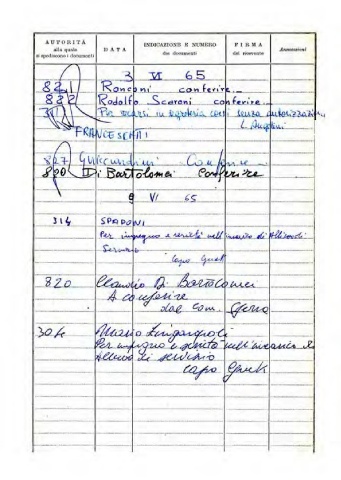 AUTORITÀ
alla quale
si spediscono i documenti
DATA
INDICAZIONE E NUMERO
dei documenti
FIRMA
del ricevente
Annotazioni
3 VI 65
Ronconi conferire
832 Rodolfo Scaroni conferire
Per in senza autorizzazione
L. Angelini
FRANCESCHI
827 Guicciardini Conferire
820 Di Bartolomei Conferire
9 VI 65
314 SPADONI
Per impegno e serietà nell' di Allievo di
Servizio
Capo
820 Claudio Di Bartolomei
A conferire
dal Com.
304 Mario
Per impegno e serietà nell'incarico di
Allievo di servizio
capo